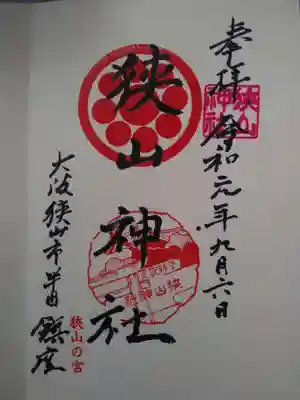 奉拝 令和元年九月六日
狭山神社
狭山神社
大阪狭山市半田鎮座
狭山の宮